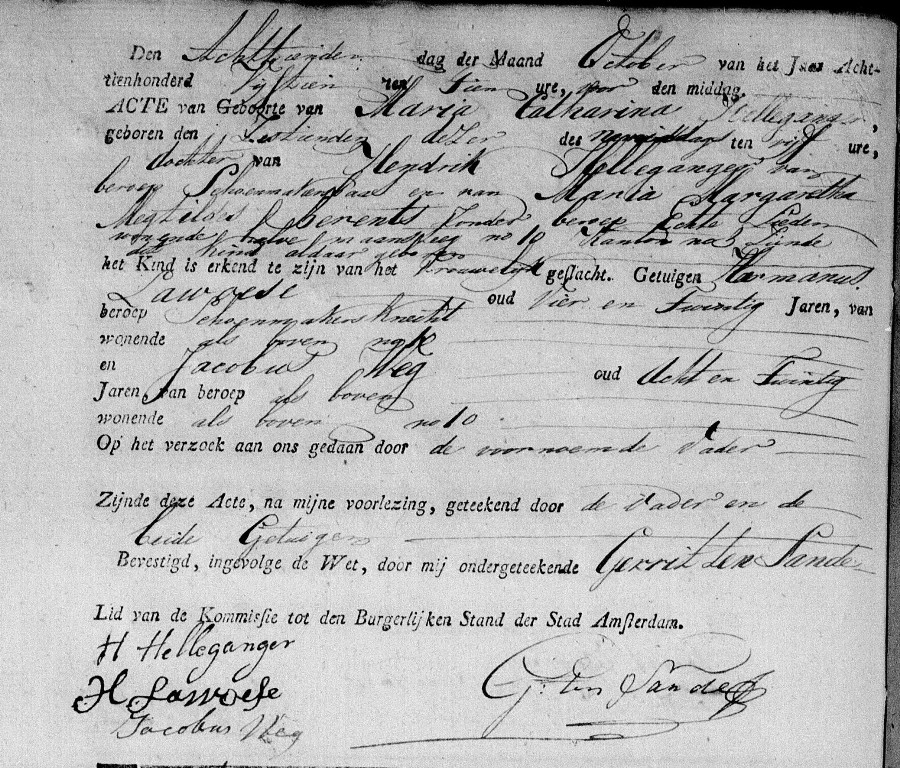 Den Achttienden dag der Maand October van het Jaar Acht-
tienhonderd Vijftien ten Tien ure, voor den middag,
ACTE van Geboorte van Maria Catharina Helleganger,
geboren den Zestienden dezer des namiddags ten vijf ure,
dochter van Hendrik Helleganger van
beroep Schoenmakersbaas en van Maria Margaretha
Megtildes Berents zonder beroep Echte Lieden
wonende halve maansteeg no 10 Kanton no
het kind aldaar geboren
het Kind is erkend te zijn van het Vrouwelijk geslacht. Getuigen Harmanus
Lawoese oud Vier en Twintig Jaren, van
beroep Schoenmakersknecht
wonende als boven no
en Jacobus Weg oud Acht en Twintig
Jaren, van beroep als boven
wonende als boven no 10
Op het verzoek aan ons gedaan door de voornoemde Vader
Zijnde deze Acte, na mijne voorlezing, geteekend door de Vader en de
beide Getuigen
Bevestigd, ingevolge de Wet, door mij ondergeteekende Gerrit ten Sande
Lid van de Kommissie tot den Burgerlijken Stand der Stad Amsterdam.
H Helleganger
H Lawoese G. ten Sande
Jacobus Weg